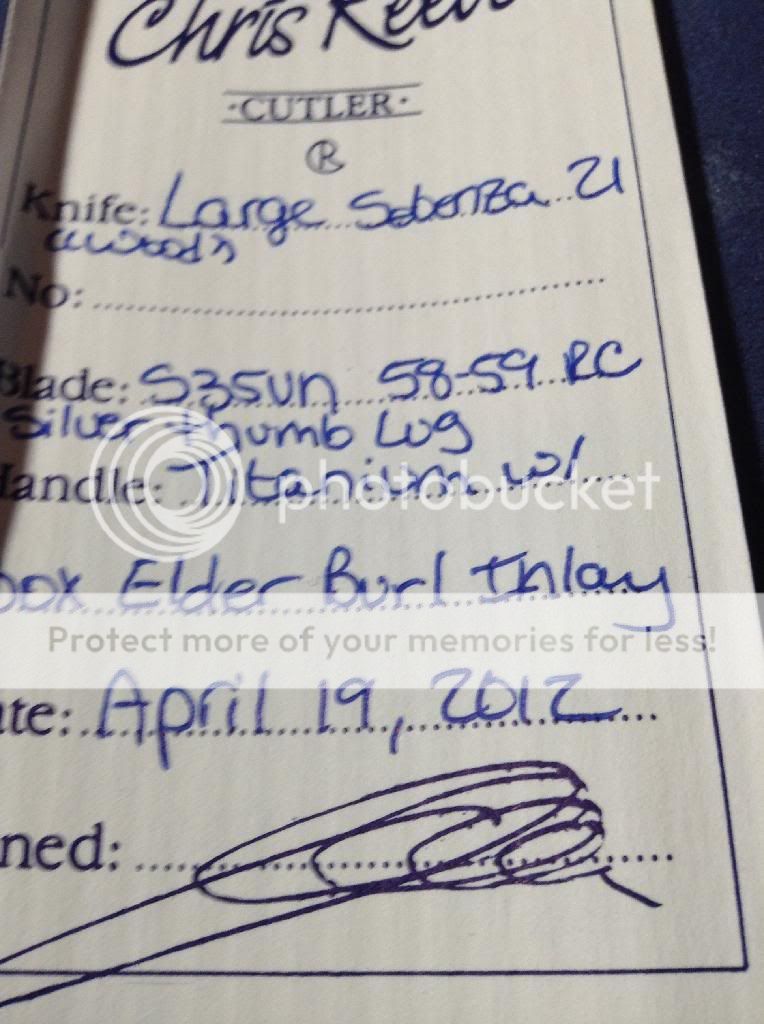 Chris Reev
·CUTLER·
®
Knife: Large Sebenza 21
No:
Blade: S35VN 58-59 RC
Silver thumb Lug
Handle: Titanium w/
photobucket
Box Elder Burl Inlay
Protect more of your memories for less!
ate: April 19, 2012
ned: